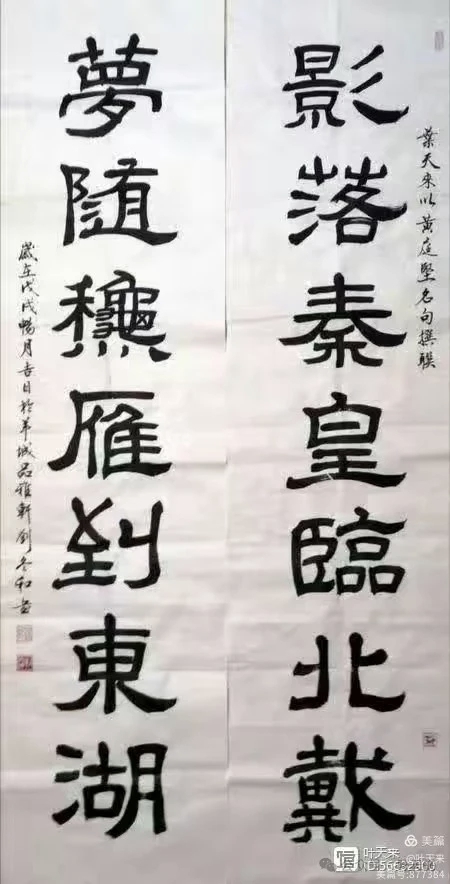 葉天來以黃庭堅名句撰聯
影落秦皇臨北戴
夢随龝雁到東湖
歲在戊戌暢月吉日於羊城品雅軒劉冬和書
美篇
叶天来
@叶天来
美篇号:877384